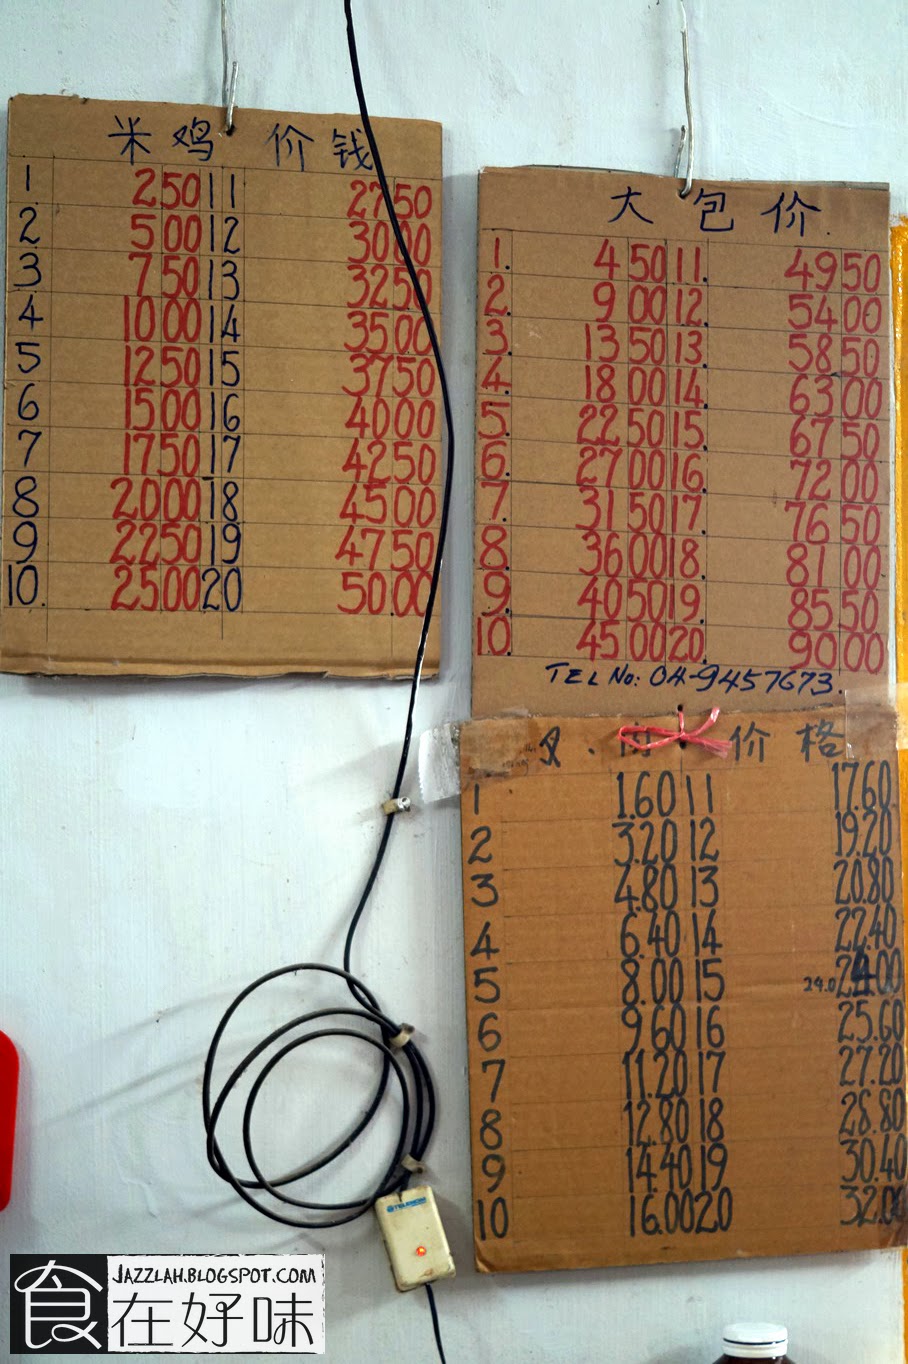 米鸡 价钱
1 2 50 11 27 50
2 5 00 12 30 00
3 7 50 13 32 50
4 10 00 14 35 00
5 12 50 15 37 50
6 15 00 16 40 00
7 17 50 17 42 50
8 20 00 18 45 00
9 22 50 19 47 50
10. 25 00 20 50.00
大包价.
1. 4 50 11. 49 50
2. 9 00 12. 54 00
3. 13 50 13. 58 50
4. 18 00 14. 63 00
5. 22 50 15. 67 50
6. 27 00 16. 72 00
7. 31 50 17. 76 50
8. 36 00 18. 81 00
9. 40 50 19. 85 50
10. 45 00 20. 90 00
TEL No: 04-9457673.
价格
1 1.60 11 17.60
2 3.20 12 19.20
3 4.80 13 20.80
4 6.40 14 22.40
5 8.00 15 24.0 24.00
6 9.60 16 25.60
7 11.20 17 27.20
8 12.80 18 28.80
9 14.40 19 30.40
10 16.00 20 32.00
TELEKOM
JAZZLAH.BLOGSPOT.COM
食在好味